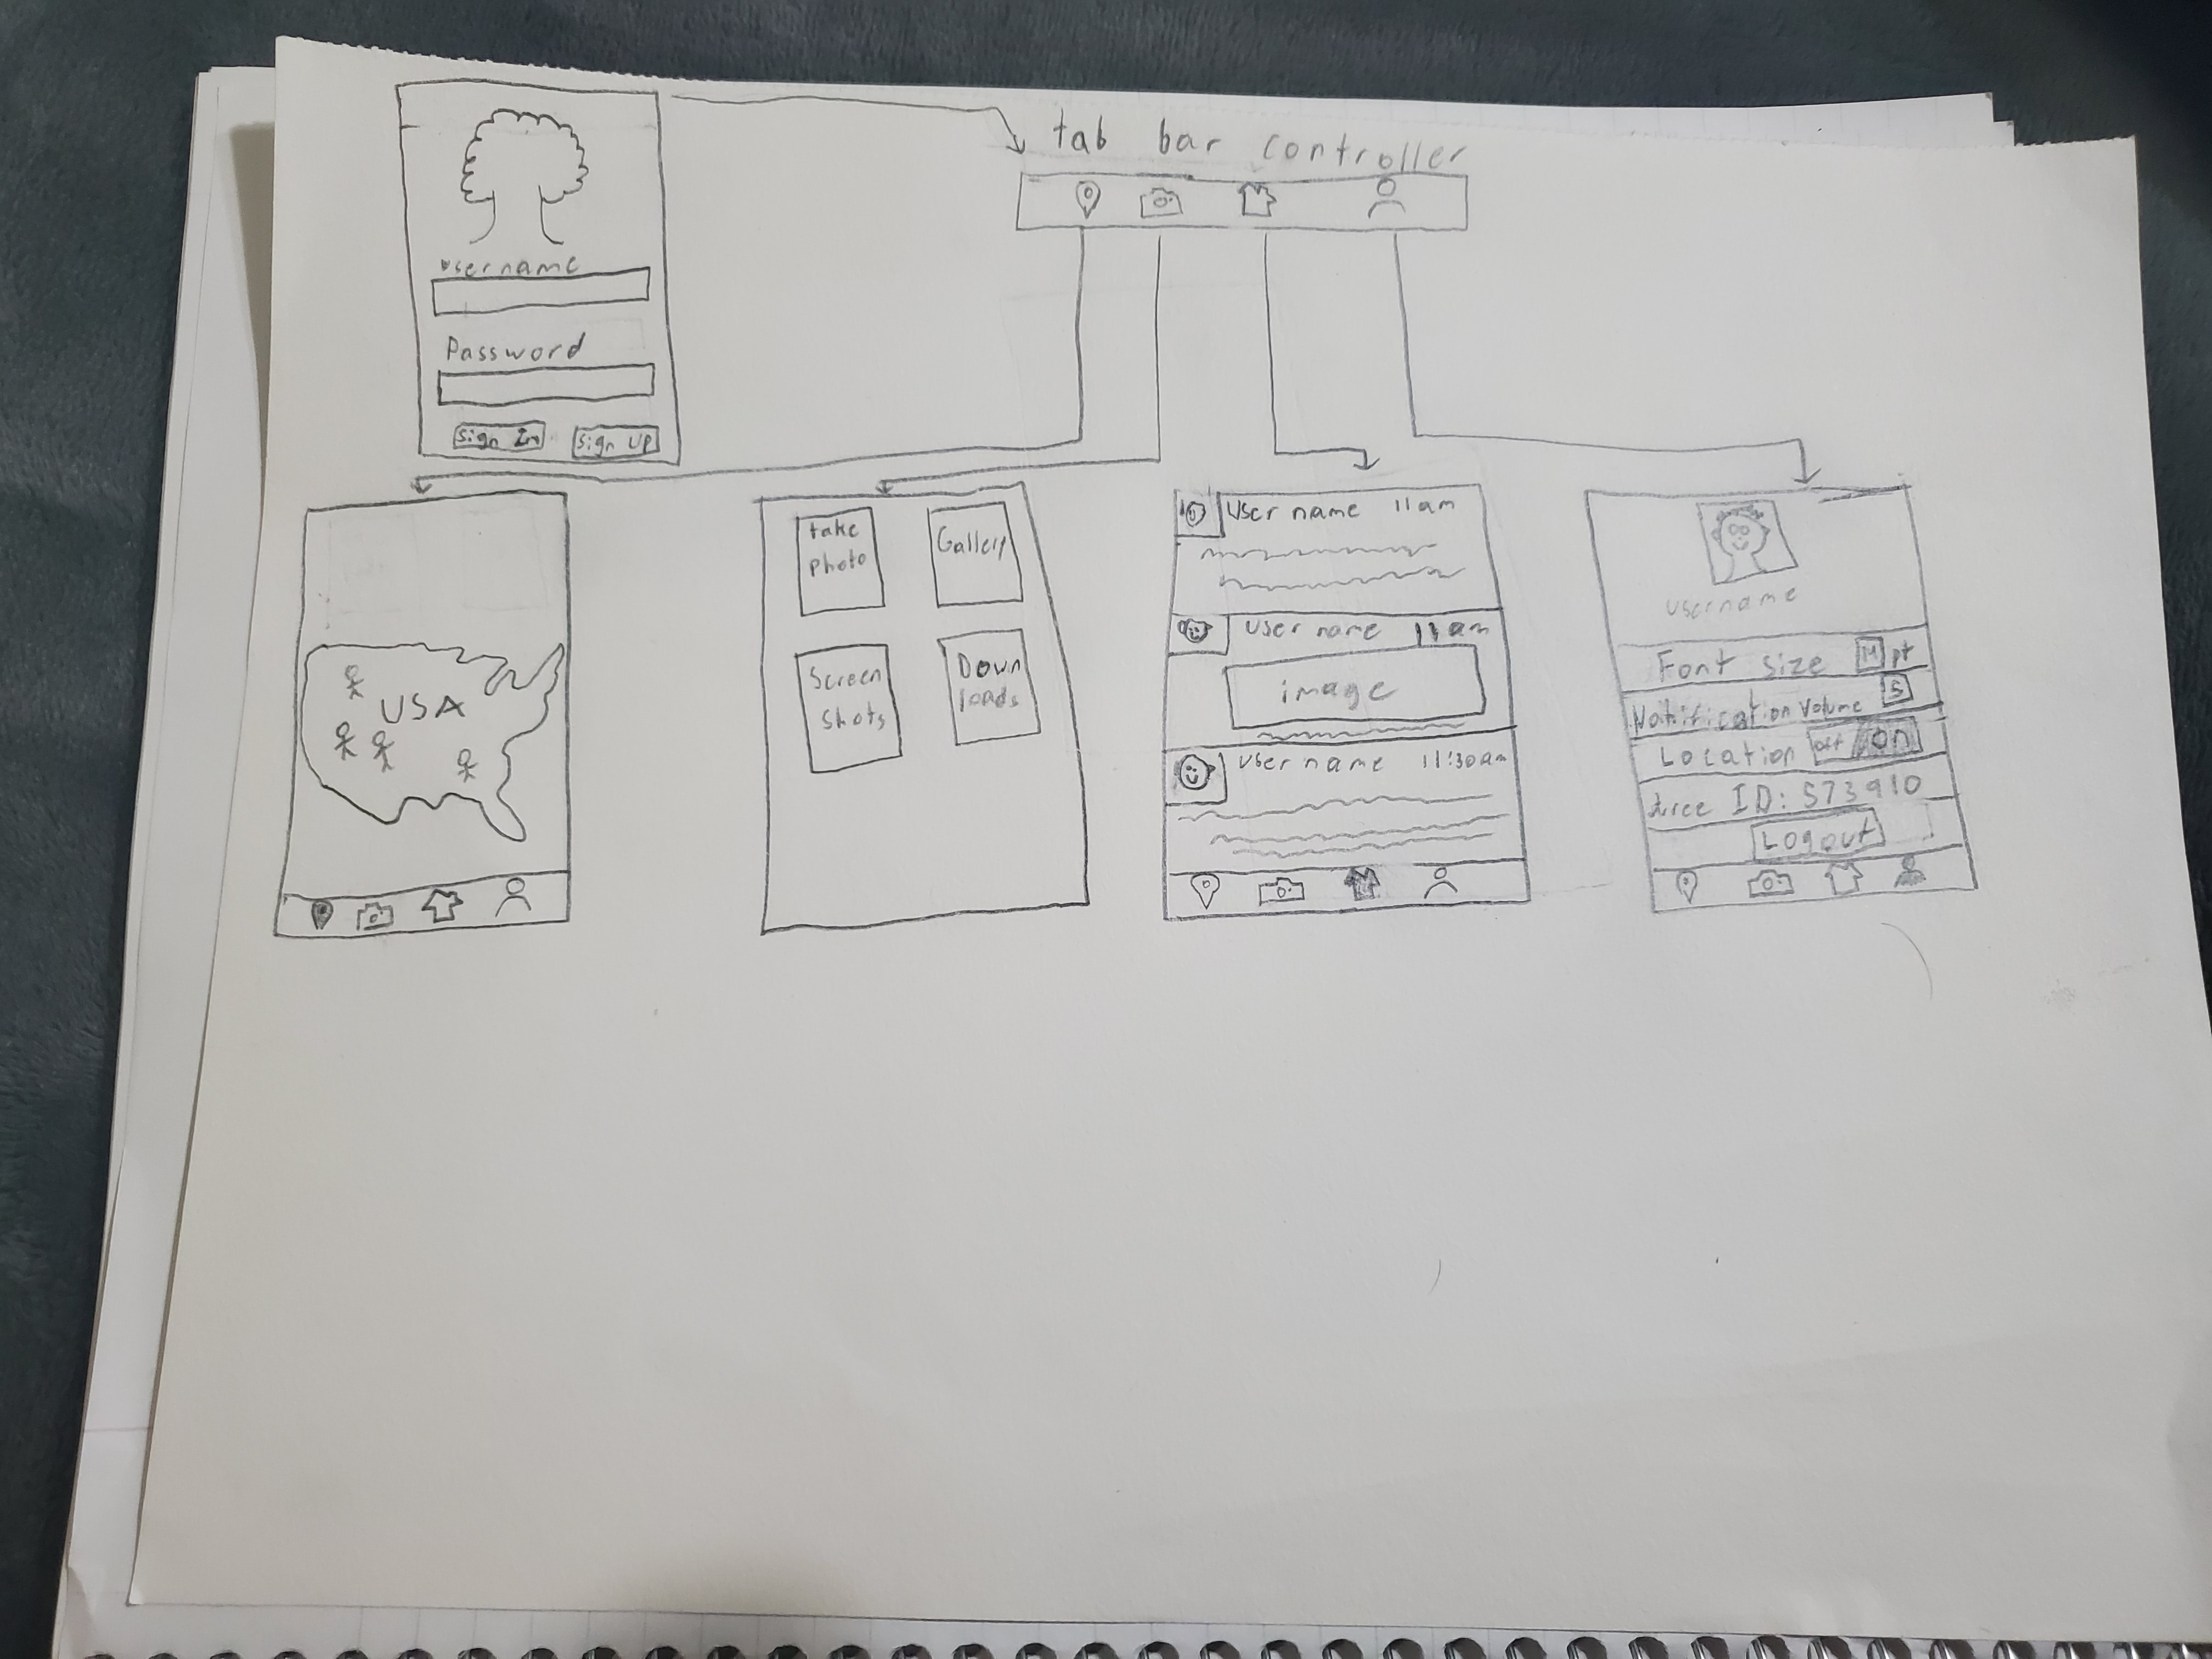 tab bar controller
username
Password
Sign In
Sign Up
USA
take
photo
Gallery
Screen
shots
Down
loads
User name 11am
User name 11am
image
User name 11:30am
username
Font size 14 pt
Notification Volume 5
Location off on
tree ID: 573910
Logout